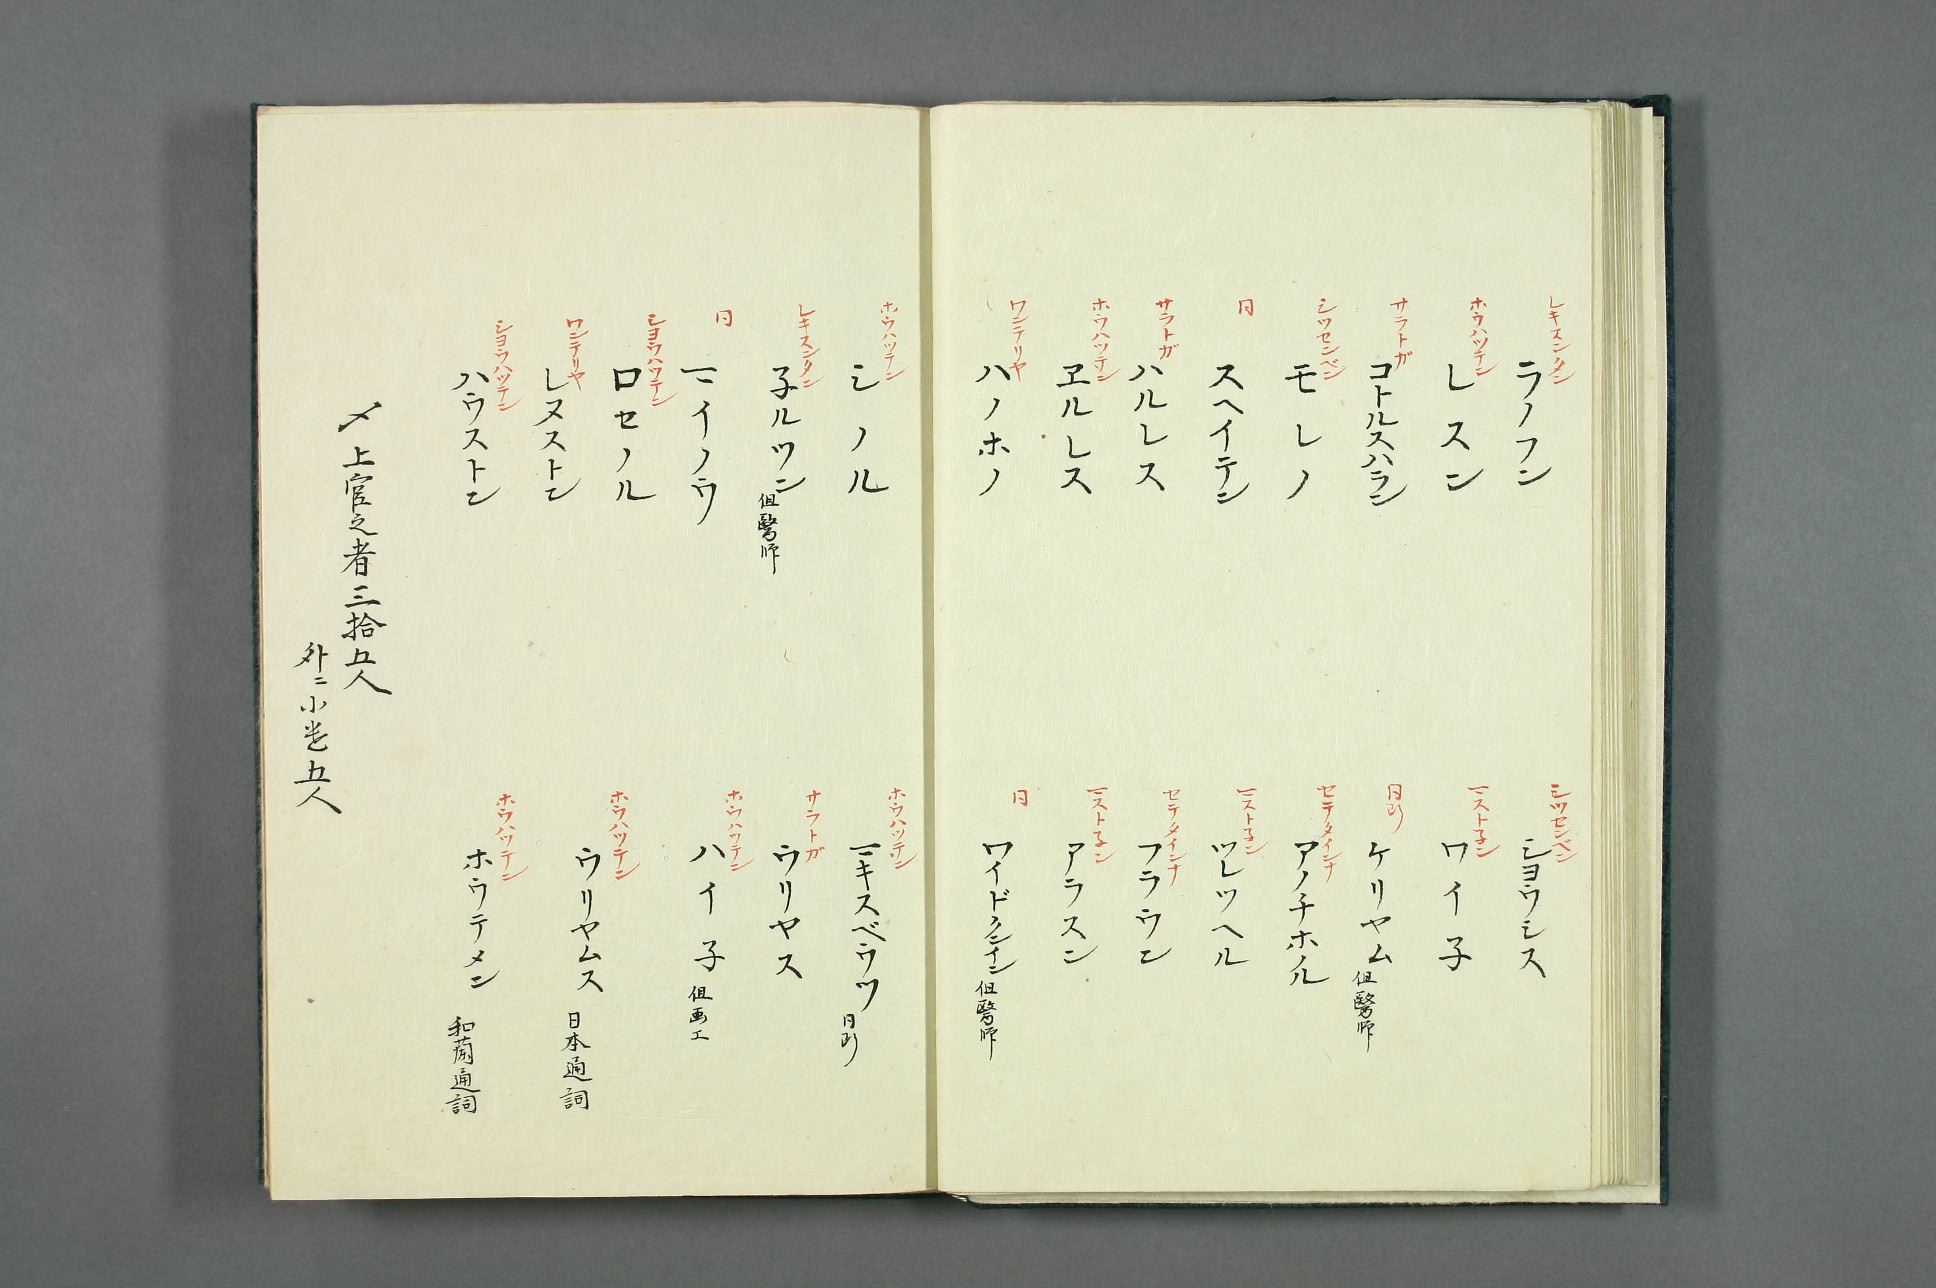 レキスンタン
ラノフン
ホウハツテン
レスン
サラトガ
コトルスハラン
シツセンベン
モレノ
同
スヘイテン
サラトガ
ハルレス
ホウハツテン
ヱルレス
ワンテリヤ
ハノホノ
シツセンベン
シヨウシス
マスト子ン
ワイ子
同断
ケリヤム 但醫師
セテタメインナ
アノチホノル
マスト子ン
ツレツヘル
セテタメインナ
フラウン
マスト子ン
アラスン
同
ワイドクンイン 但醫師
ホウハツテン
シノル
レキスンタン
子ルツン 但醫師
同
マイノウ
シヨウハツテン
ロセノル
ワンテリヤ
レヌストン
シヨウハツテン
ハウストン
ホウハツテン
マキスベウツ 同断
サラトガ
ウリヤス
ホウハツテン
ハイ子 但画工
ホウハツテン
ウリヤムス 日本通詞
ホウハツテン
ホウテメン 和蘭通詞
〆上官之者三拾五人
外ニ小者五人